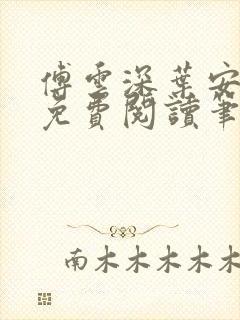 傅雲深葉安
免費閱讀筆
南木木木木